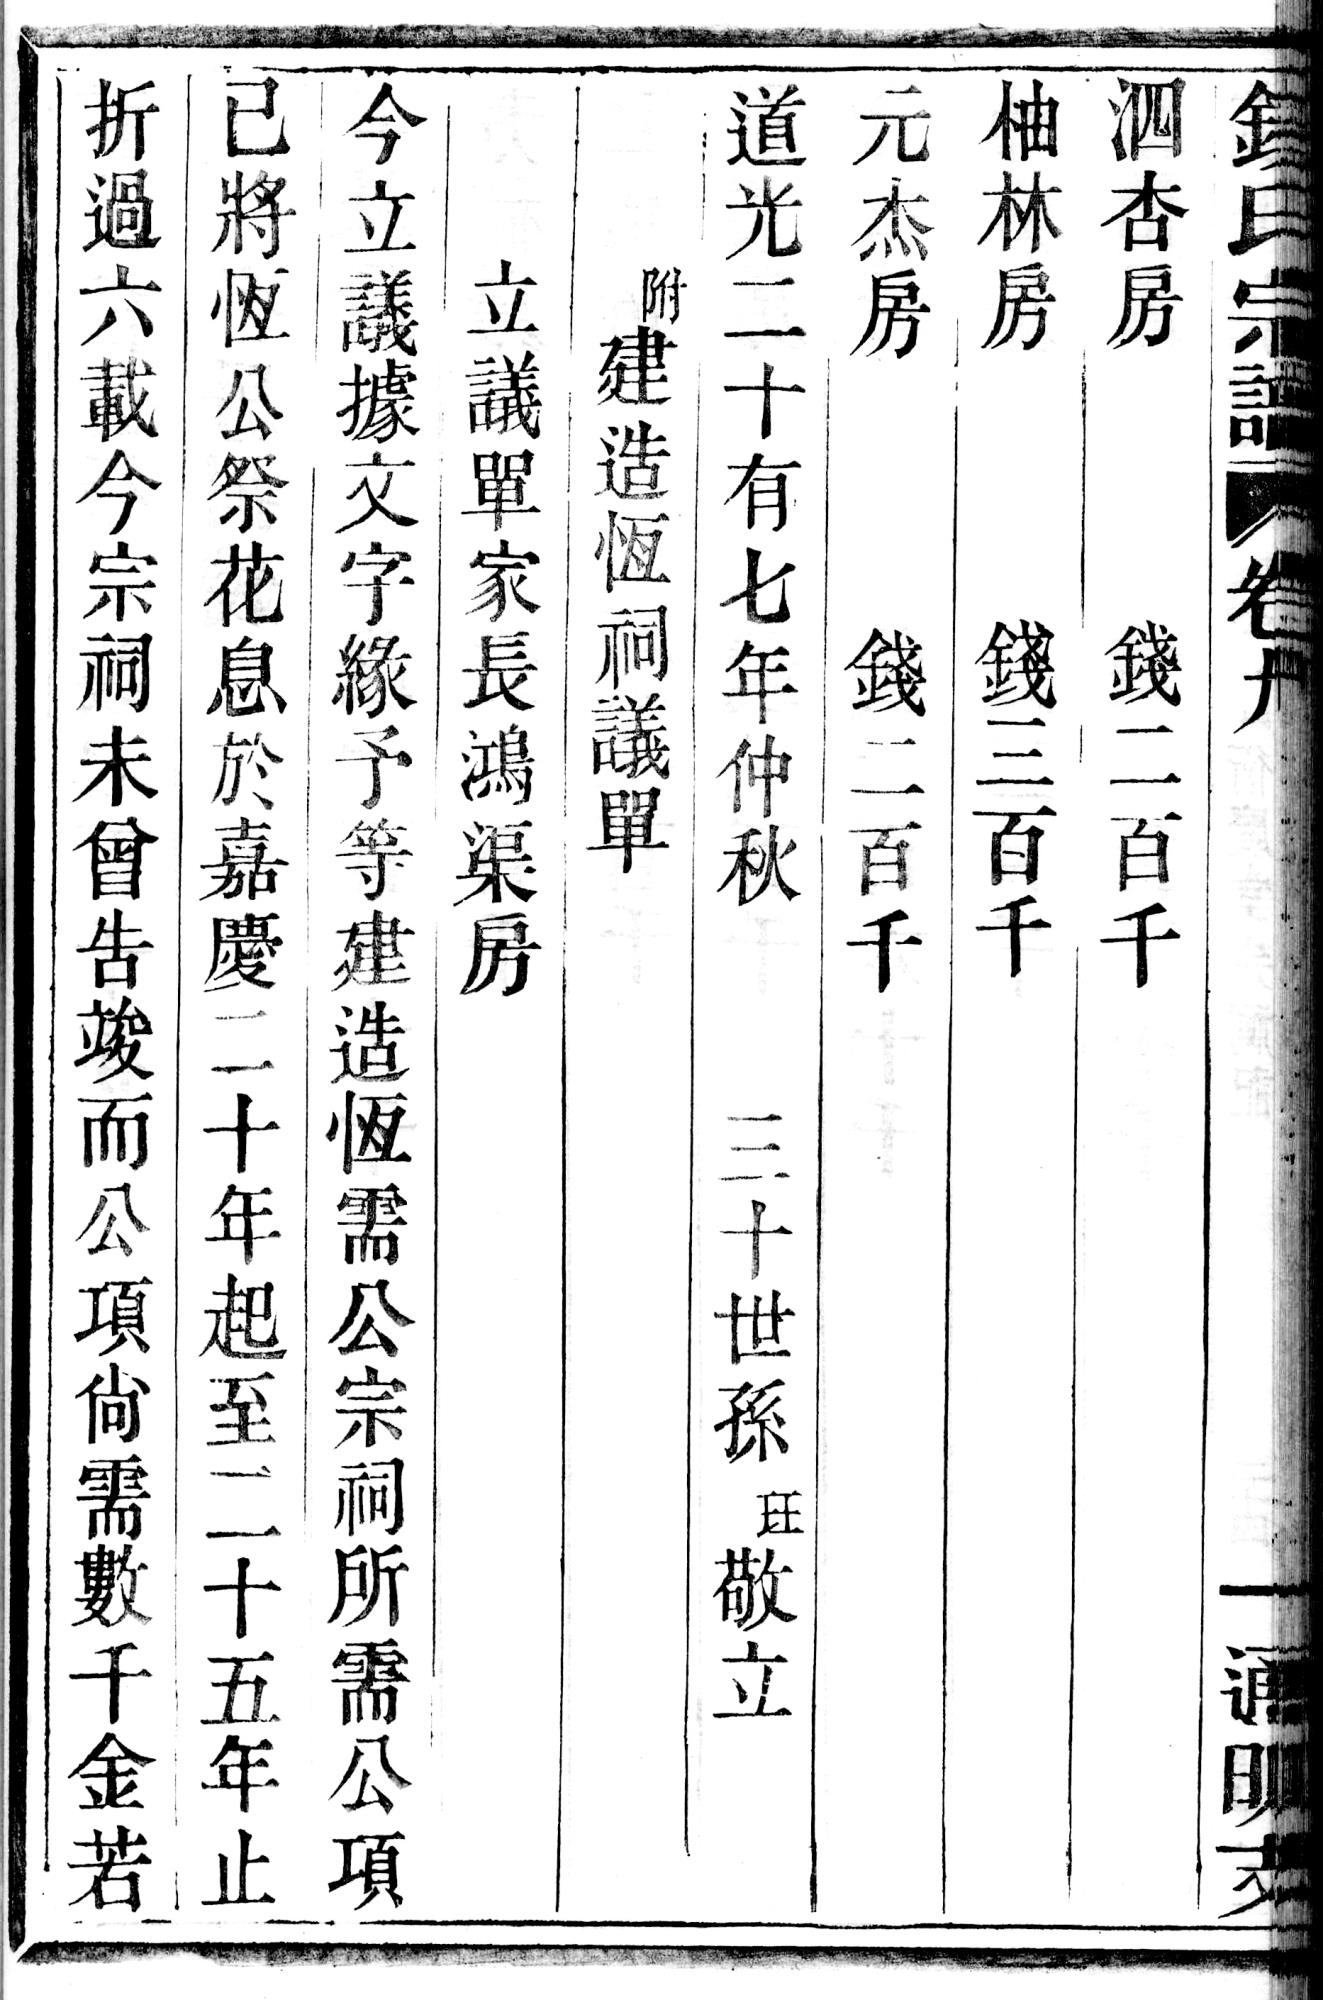 錢氏宗譜 卷 通明支
泗杏房 錢二百千
柚林房 錢三百千
元杰房 錢二百千
道光二十有七年仲秋 三十世孫 敬立
附建造恆祠議單
立議單家長鴻渠房
今立議據文字緣予等建造恆需公宗祠所需公項
已將恆公祭花息於嘉慶二十年起至二十五年止
折過六載今宗祠未曾告竣而公項尙需數千金若